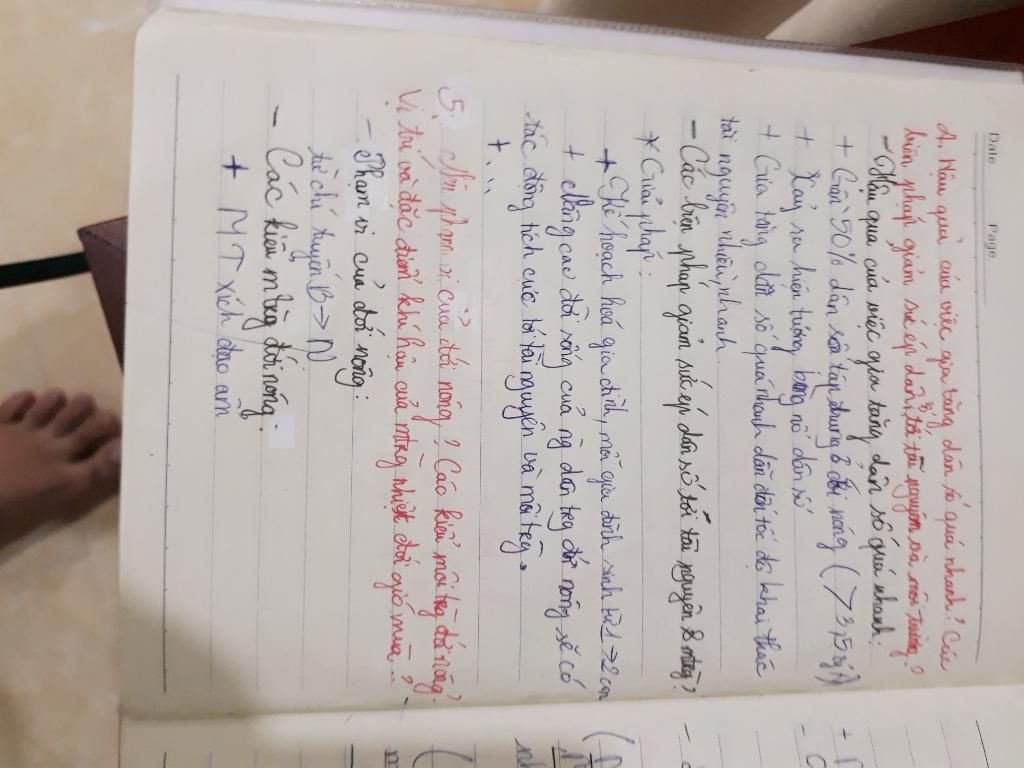 Date
Page
4. Hậu quả của việc gia tăng dân số quá nhanh? Các
biện pháp giảm sức ép dân số tới tài nguyên và môi trường?
- Hậu quả của việc gia tăng dân số quá nhanh:
+ Gần 50% dân số tập trung ở đới nóng (> 3,5 tỷ)
+ Xảy ra hiện tượng bùng nổ dân số
+ Gia tăng dân số quá nhanh dẫn đến tốc độ khai thác
tài nguyên nhiên nhanh.
- Các biện pháp giảm sức ép dân số tới tài nguyên & mtrg?
* Giải pháp:
+ Kế hoạch hoá gia đình, mỗi gia đình sinh từ 1 → 2 con
+ Nâng cao đời sống của ng dân trg đới nóng sẽ có
tác động tích cực tới tài nguyên và môi trg.
+ ...
5. Nêu phạm vi của đới nóng? Các kiểu môi trg đới nóng?
Vị trí và đặc điểm khí hậu của mtrg nhiệt đới gió mùa?
- Phạm vi của đới nóng:
từ chí tuyến B → N
- Các kiểu mtrg đới nóng.
+ MT xích đạo ẩm